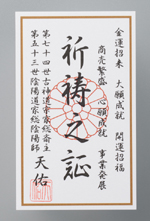 金運招来　大願成就　開運招福
商売繁盛　心願成就　事業発展
祈祷之証
第七十四世古神道帝家総斎主
第五十三世陰陽道家総陰陽師
天佑